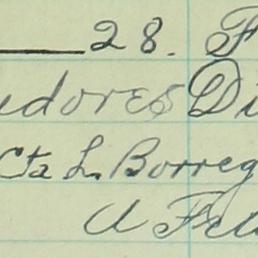 28. F
edores Di
cta L. Borreg
A Fel